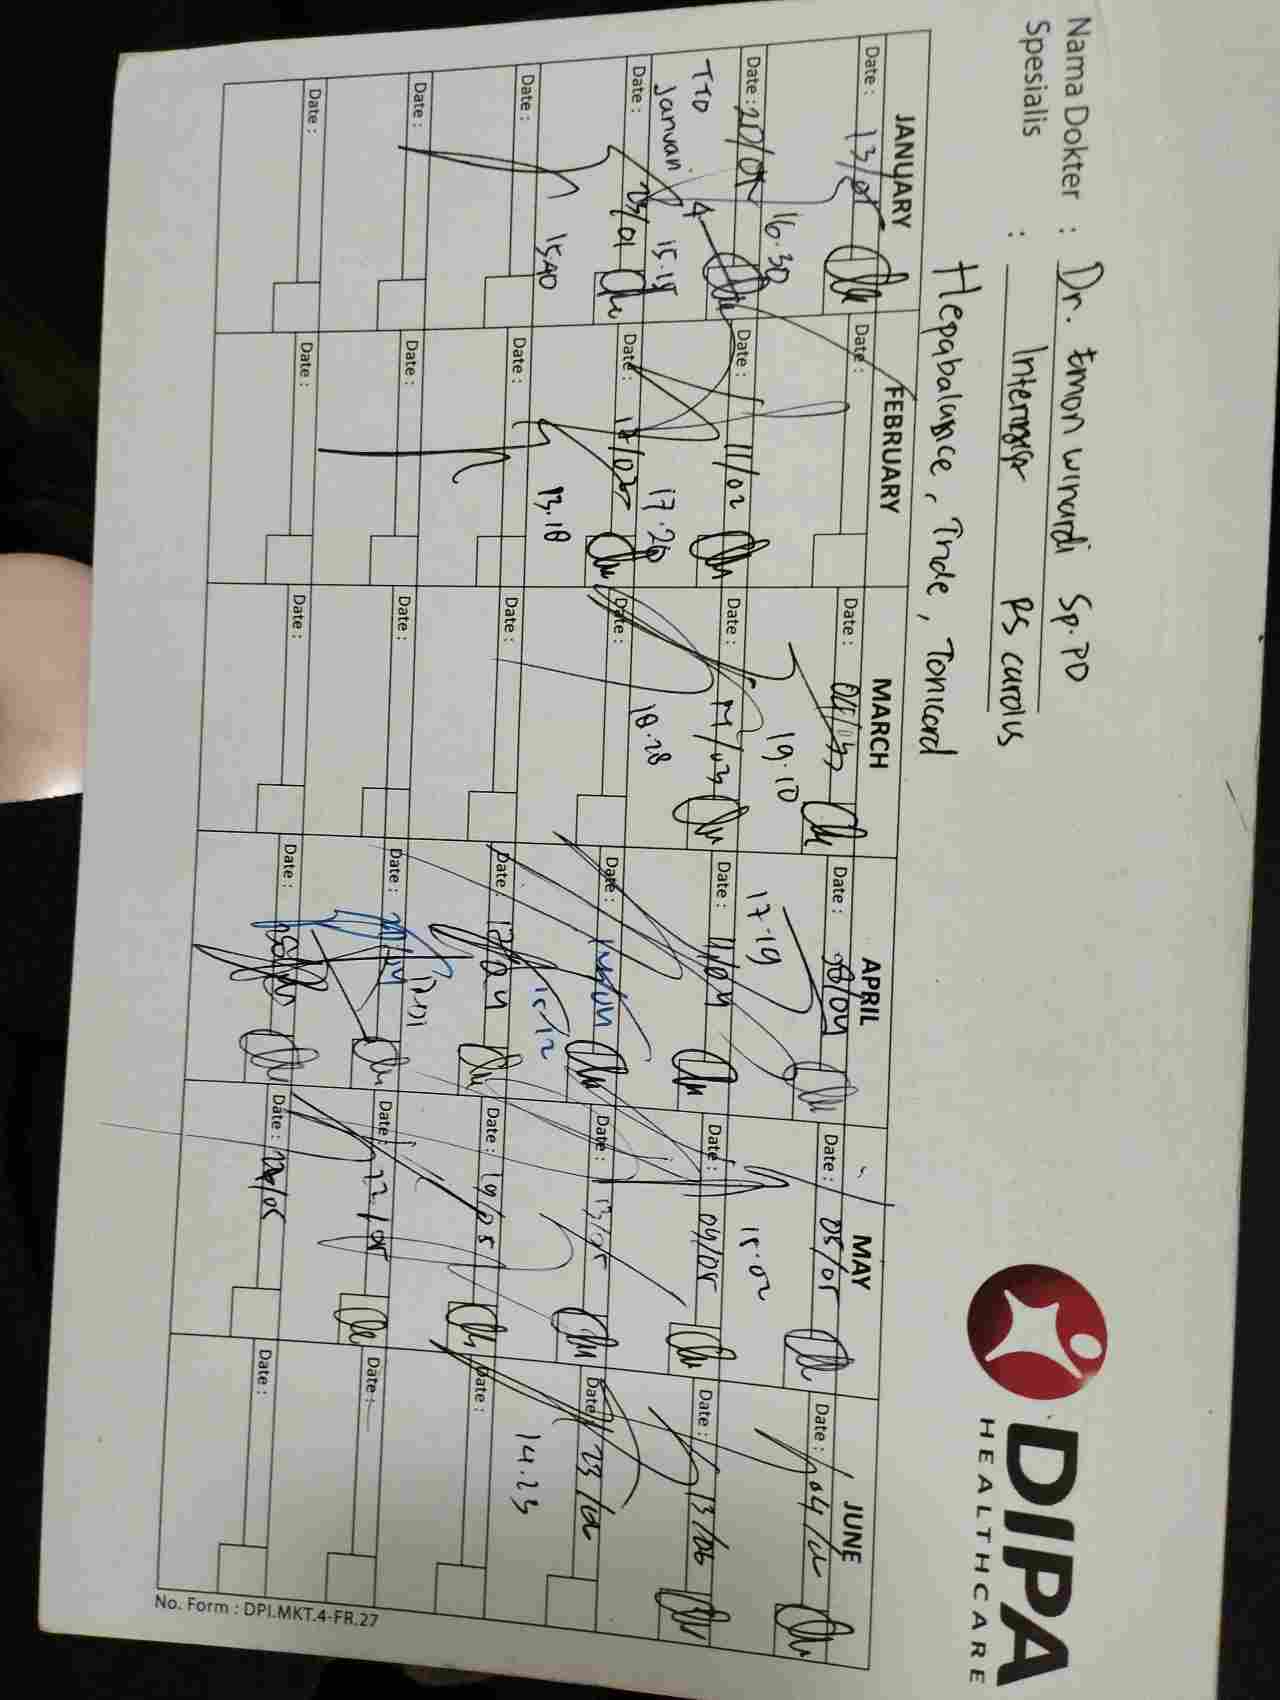 Nama Dokter : Dr. Emon winardi Sp.PD
Spesialis : Internist RS carolus
Hepabalance, Tride, Tonicard
DIPA
HEALTHCARE
JANUARY
Date : 13/01
16.30
Date : 20/01
TTD Januari
15.15
Date : 23/01
15.40
Date :
Date :
Date :
FEBRUARY
Date :
Date : 11/02
17.20
Date : 17/02
13.18
Date :
Date :
Date :
MARCH
Date : 04/03
19.10
Date : 17/03
18.28
Date :
Date :
Date :
Date :
APRIL
Date : 08/04
17.19
Date : 11/04
Date :
15.12
Date : 17/04
17.01
Date :
Date :
MAY
Date : 05/05
15.02
Date : 09/05
Date : 13/05
Date : 19/05
Date : 22/05
Date :
JUNE
Date : 04/06
Date : 13/06
Date : 23/06
14.23
Date :
Date :
Date :
No. Form : DPI.MKT.4-FR.27